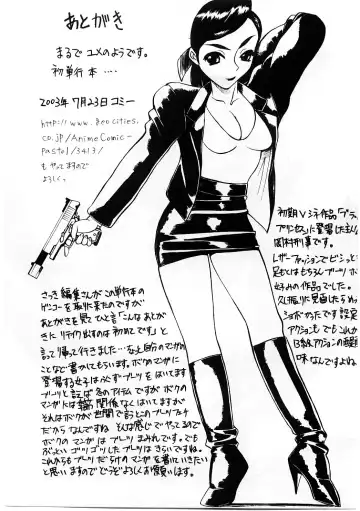 あとがき
まるで ユメのようです。
初単行本 ‥‥
2003年 7月23日 コミー
http://www.geocities.
co.jp/AnimeComic-
Pastel/3413/
もやってますので
よろしく。
初期Vシネ作品「ブラッ
プリンセス」に登場した主人
刑事です。
レザーファッションでビシッと
足もとはもちろんブーツで
好みの作品でした。
久しぶりに見直したらめっ
ショボかったです 設定
アクションも でもこれが
B級アクションの醍醐
味なんですよね
さっき 編集さんがこの単行本の
ゲンコーを取りに来たのですが
あとがきを見てひと言「こんなあとが
きた リテイク出すのは初めてです」と
言って帰って行きました…なので自分のマンガの
ことなど書かせてもらいます。ボクのマンガに
登場する女子は必ずブーツをはいてます
ブーツと言えば冬のアイテムですがボクの
マンガには季節関係なくはいてますが
それはボクが世間で言うとこのブーツフェチ
だからなんですね そんな感じでやってますので
ボクのマンガはブーツまみれんです。でも
ぶっといゴツゴツしたブーツはきらいですね。
これからもブーツだらけのマンガを書いていきたい
と思いますのでどうぞよろしくお願いします。